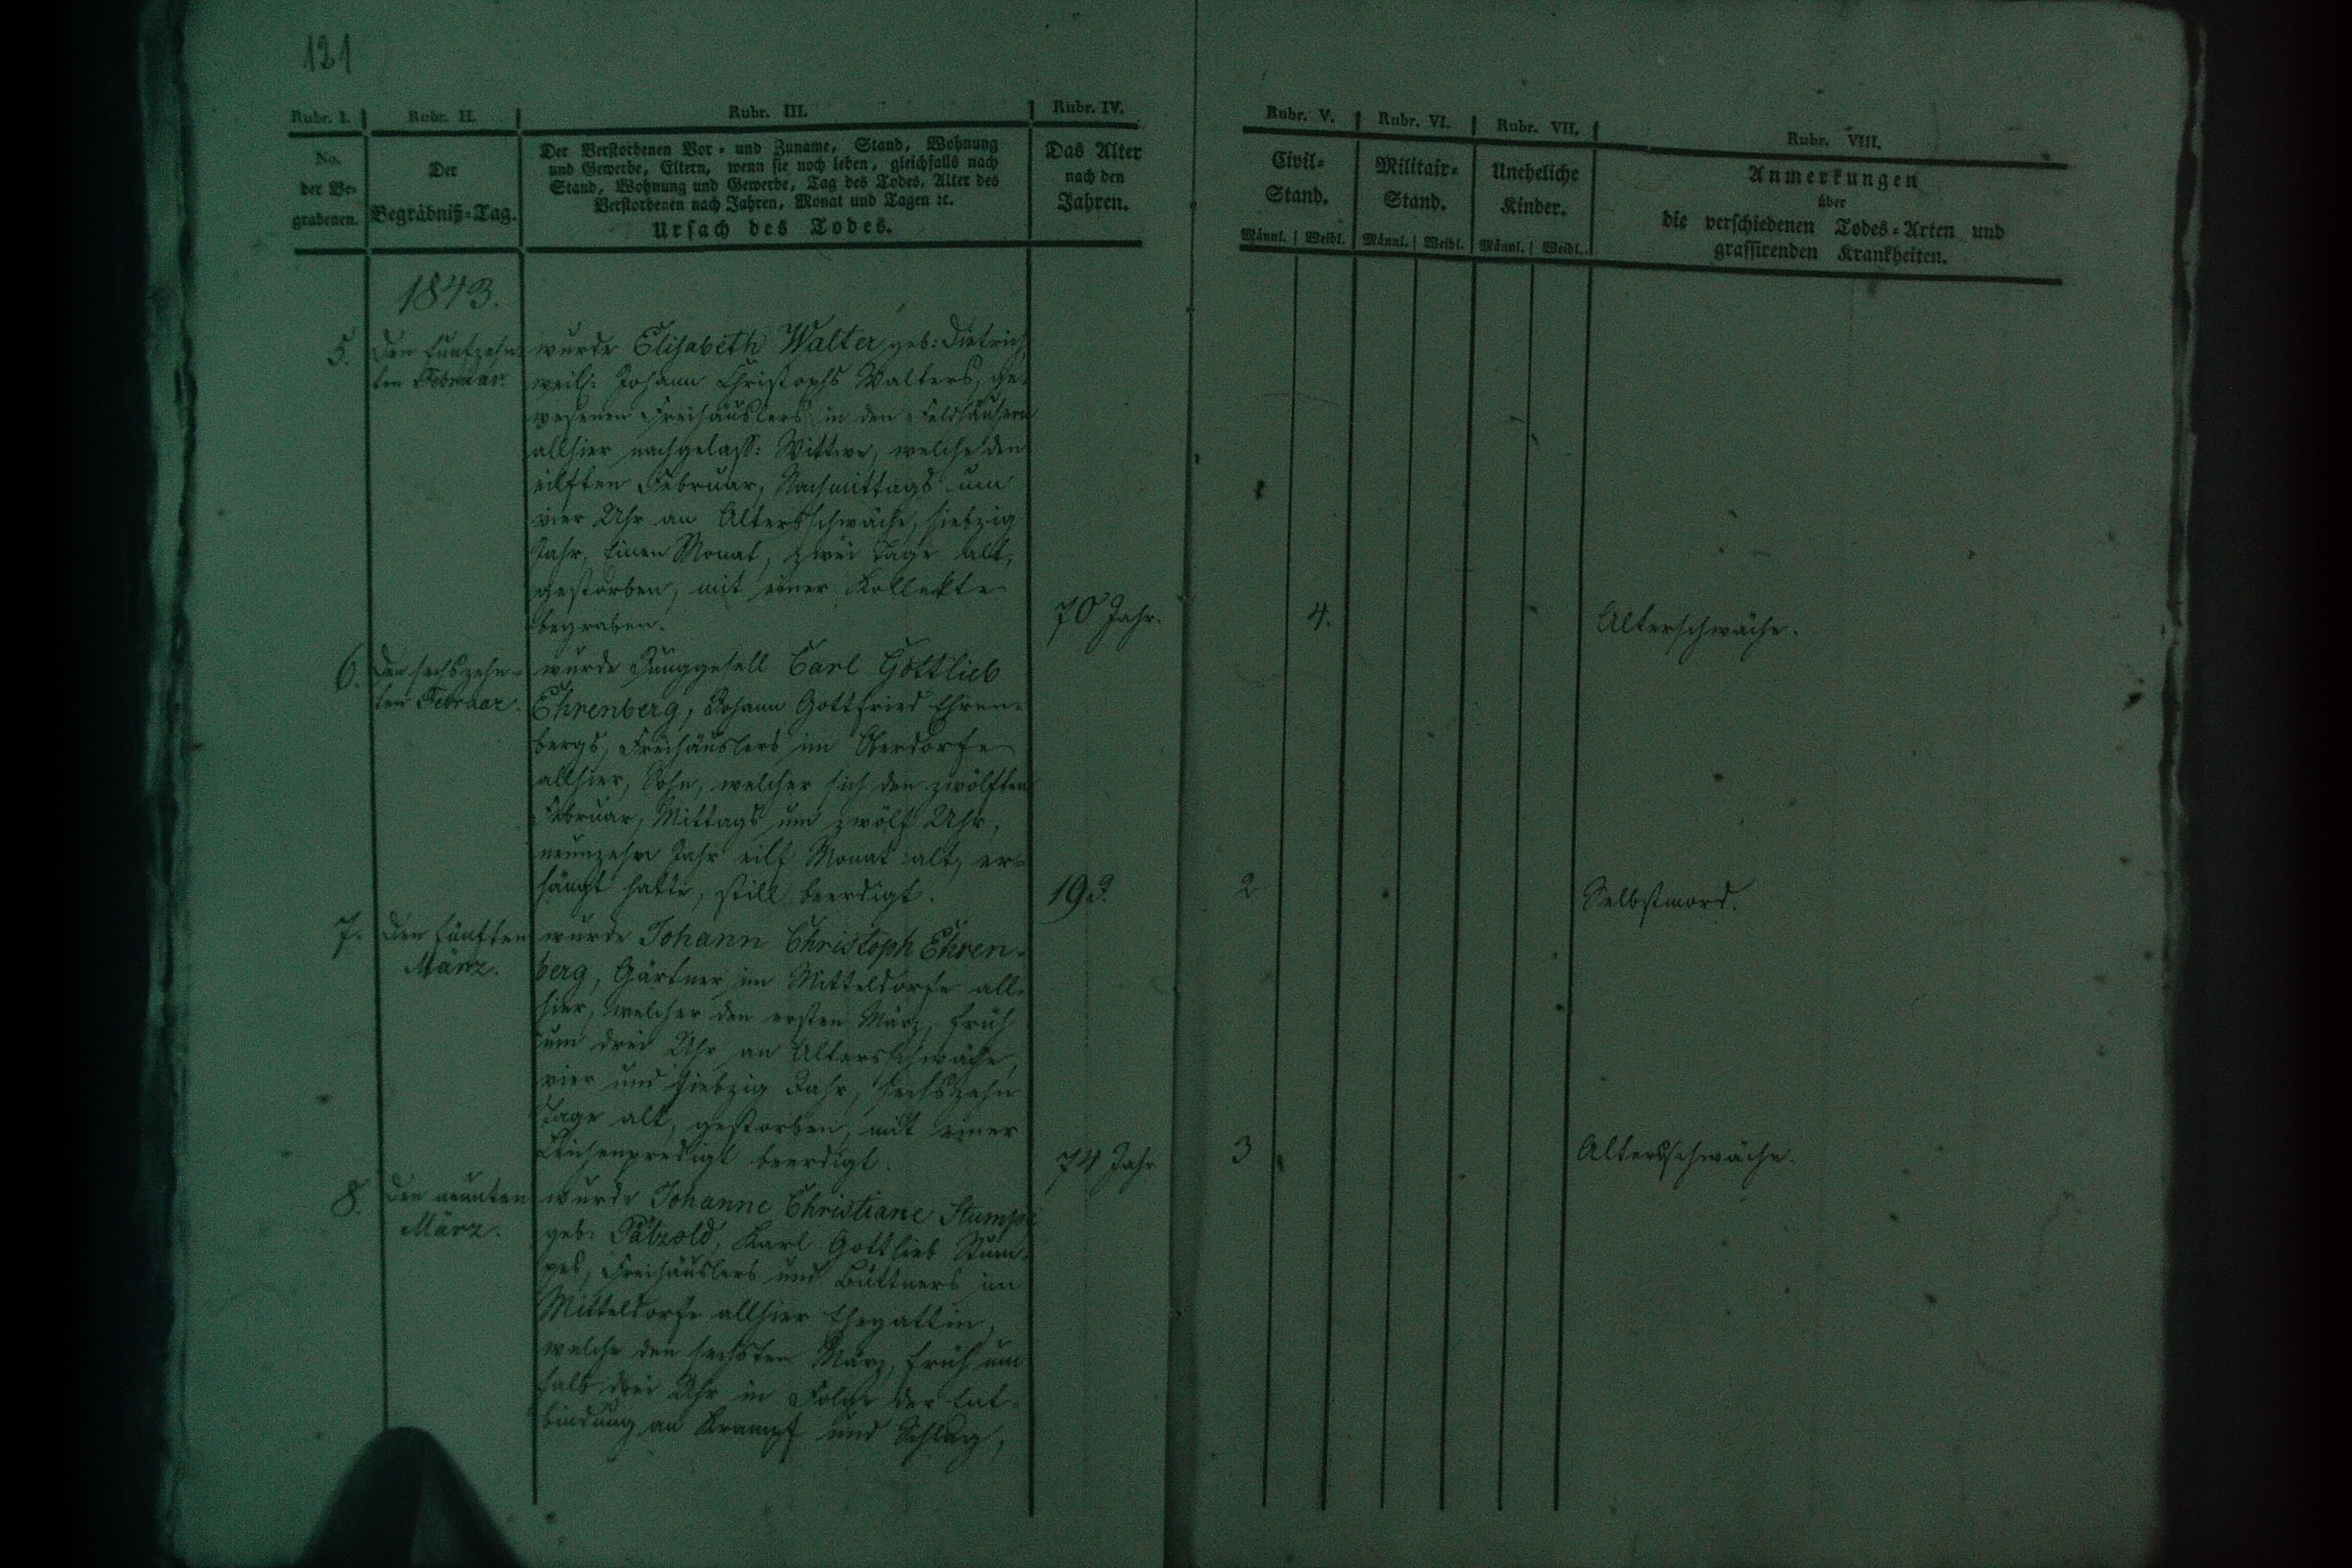 121
Rubr. I. Rubr. II. Rubr. III. Rubr. IV. Rubr. V. Rubr. VI. Rubr. VII. Rubr. VIII.
No.
der Be-
grabenen.
Der
Begräbniß-Tag.
Der Verstorbenen Vor- und Zuname, Stand, Wohnung
und Gewerbe, Eltern, wenn sie noch leben, gleichfalls nach
Stand, Wohnung und Gewerbe, Tag des Todes, Alter des
Verstorbenen nach Jahren, Monat und Tagen ꝛc.
Ursach des Todes.
Das Alter
nach den
Jahren.
Civil-
Stand.
Männl. Weibl.
Militair-
Stand.
Männl. Weibl.
Uneheliche
Kinder.
Männl. Weibl.
Anmerkungen
über
die verschiedenen Todes-Arten und
grassirenden Krankheiten.
1843.
5.
Den funfzehn-
ten Februar.
wurde Elisabeth Walter, geb: Dietrich
weil: Johann Christophs Walters, ge-
wesenen Freihäuslers in den Feldhäusern
allhier nachgelass: Wittwe, welche den
eilften Februar, Nachmittags um
vier Uhr an Altersschwäche, siebzig
Jahr, einen Monat, zwei Tage alt,
gestorben, mit einer Kollekte
begraben.
70 Jahr.
4.
Alterschwäche.
6.
Den sechszehn-
ten Februar.
wurde Junggesell Carl Gottlieb
Ehrenberg, Johann Gottfried Ehren-
bergs, Freihäuslers im Oberdorfe
allhier, Sohn, welcher sich den zwölften
Februar, Mittags um zwölf Uhr,
neunzehn Jahr eilf Monat alt, er-
hängt hatte, still beerdigt.
19 J.
2
Selbstmord.
7.
Den fünften
März.
wurde Johann Christoph Ehren-
berg, Gärtner im Mitteldorfe all-
hier, welcher den ersten März, früh
um drei Uhr an Altersschwäche,
vier und siebzig Jahr, sechszehn
Tage alt, gestorben, mit einer
Leichenpredigt beerdigt.
74 Jahr
3
Altersschwäche.
8.
Den neunten
März.
wurde Johanne Christiane Stumpe
geb: Pätzold, Karl Gottlieb Stum-
pes, Freihäuslers und Büttners im
Mitteldorfe allhier Ehegattin,
welche den sechsten März, früh um
halb drei Uhr in Folge der Ent-
bindung an Krampf und Schlag,